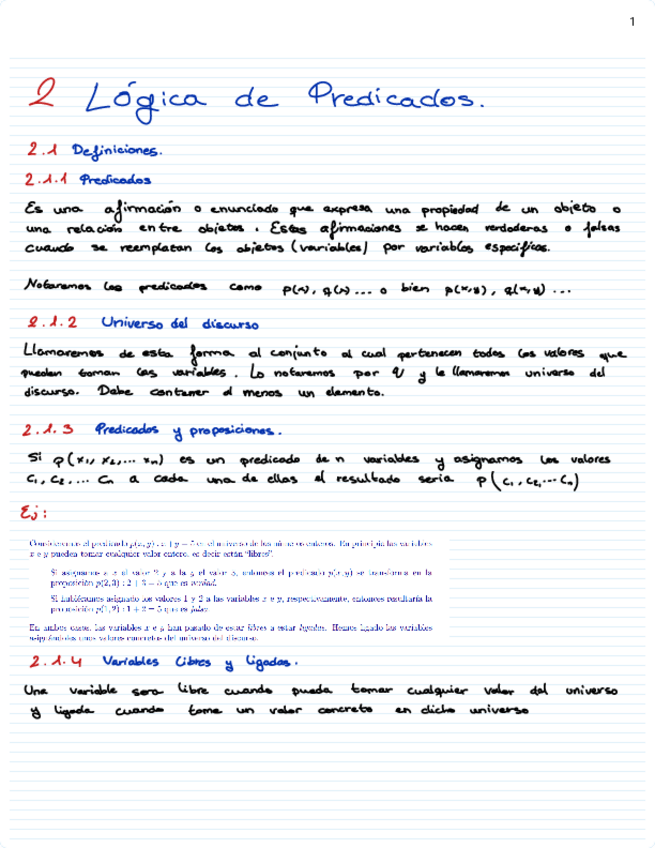 1
2 Lógica de Predicados.
2.1 Definiciones.
2.1.1 Predicados
Es una afirmación o enunciado que expresa una propiedad de un objeto o
una relación entre objetos. Estas afirmaciones se hacen verdaderas o falsas
cuando se reemplazan los objetos (variables) por variables específicas.
Notaremos los predicados como p(x), q(x)... o bien p(x,y), q(x,y)...
2.1.2 Universo del discurso
Llamaremos de esta forma al conjunto al cual pertenecen todos los valores que
puedan toman las variables. Lo notaremos por U y le llamaremos universo del
discurso. Debe contener al menos un elemento.
2.1.3 Predicados y proposiciones.
Si p(x₁, x₂,... xₙ) es un predicado de n variables y asignamos los valores
c₁, c₂,... cₙ a cada una de ellas el resultado sería p(c₁, c₂,... cₙ)
Ej:
Consideremos el predicado p(x,y) : x + y = 5 en el universo de los números enteros. En principio las variables
x e y pueden tomar cualquier valor entero, es decir están "libres".
Si asignamos a x el valor 2 y a la y el valor 3, entonces el predicado p(x,y) se transforma en la
proposición p(2,3) : 2 + 3 = 5 que es verdad.
Si hubiéramos asignado los valores 1 y 2 a las variables x e y, respectivamente, entonces resultaría la
proposición p(1,2) : 1 + 2 = 5 que es falsa.
En ambos casos, las variables x e y han pasado de estar libres a estar ligadas. Hemos ligado las variables
asignándoles unos valores concretos del universo del discurso.
2.1.4 Variables Libres y Ligadas.
Una variable sera libre cuando pueda tomar cualquier valor del universo
y ligada cuando tome un valor concreto en dicho universo